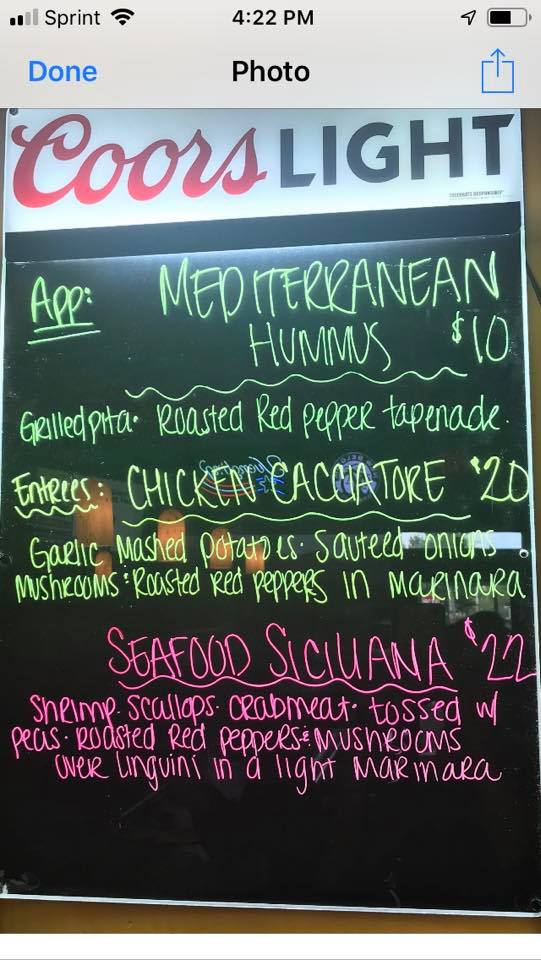 Sprint 4:22 PM
Done Photo
Coors LIGHT
App: MEDITERRANEAN
HUMMUS $10
Grilled pita · Roasted Red pepper tapenade.
Entrees: CHICKEN CACCIATORE $20
Garlic Mashed potatoes · Sauteed onions
Mushrooms · Roasted Red peppers in Marinara
SEAFOOD SICILIANA $22
Shrimp · Scallops · Crabmeat · tossed w/
peas · Roasted Red peppers & Mushrooms
over linguini in a light Marinara